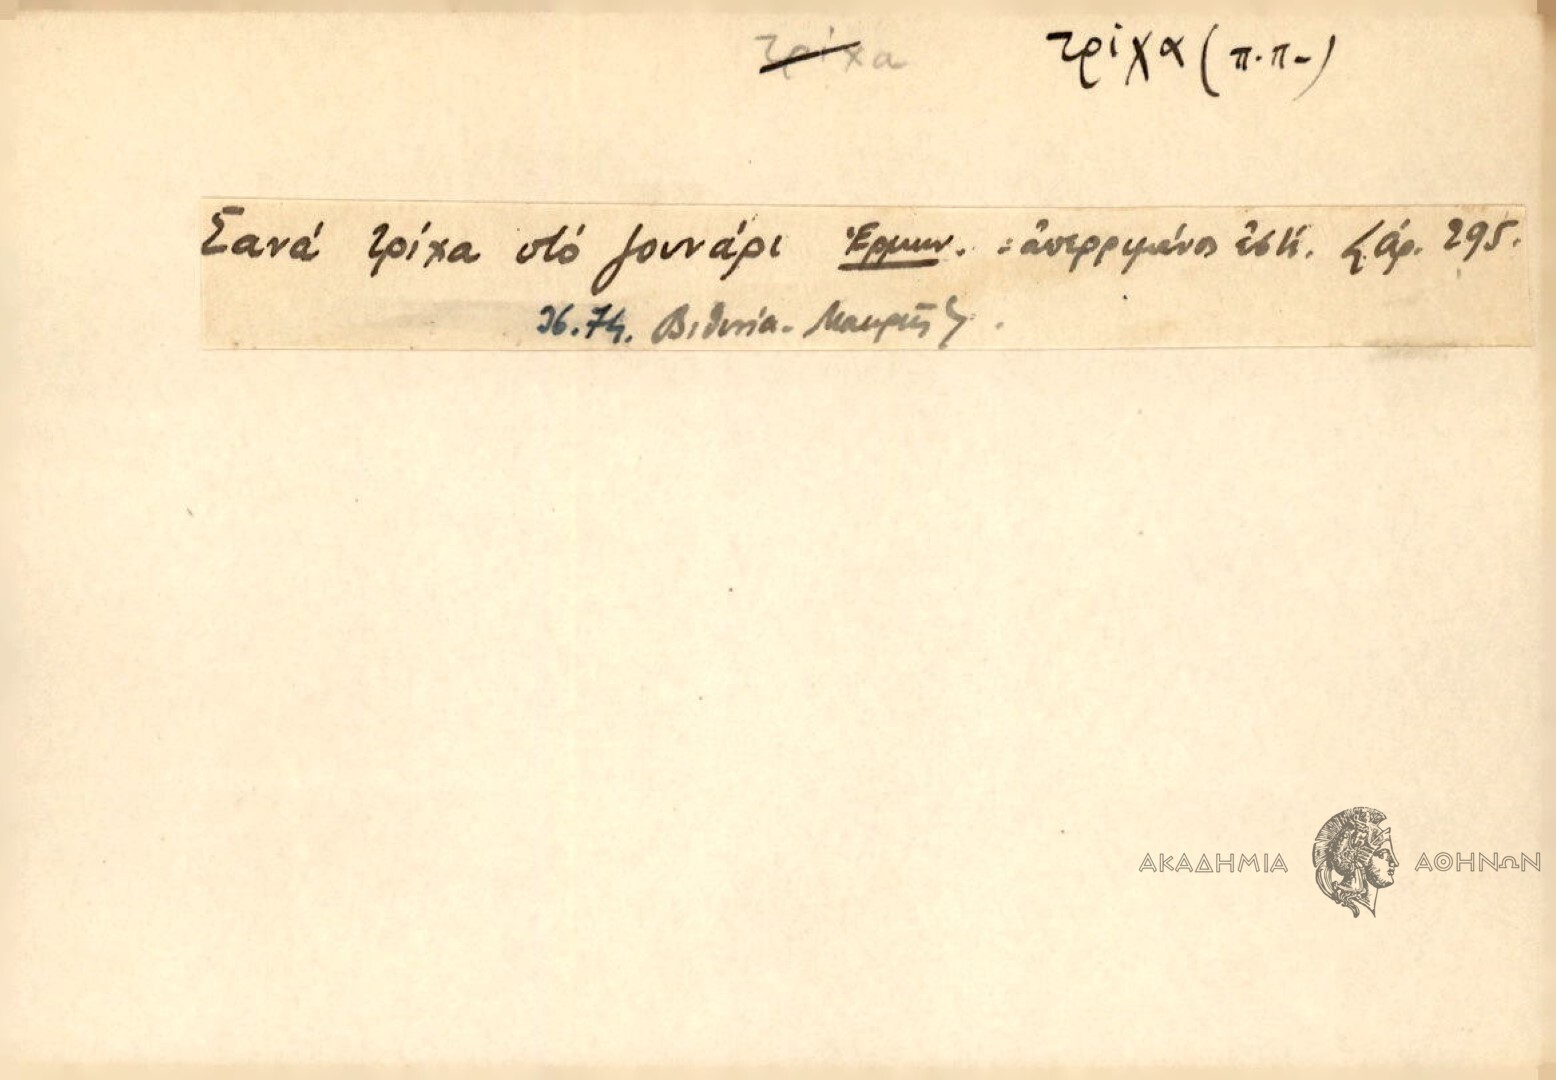 τρίχα τρίχα (π.π-)
Σανά τρίχα στό ζουνάρι Ἑρμην. = ἀπερριμμένος ἐστί. ἀρ. 295.
36.74. Βιθυνία - Μακρῆς
ΑΚΑΔΗΜΙΑ ΑΘΗΝΩΝ